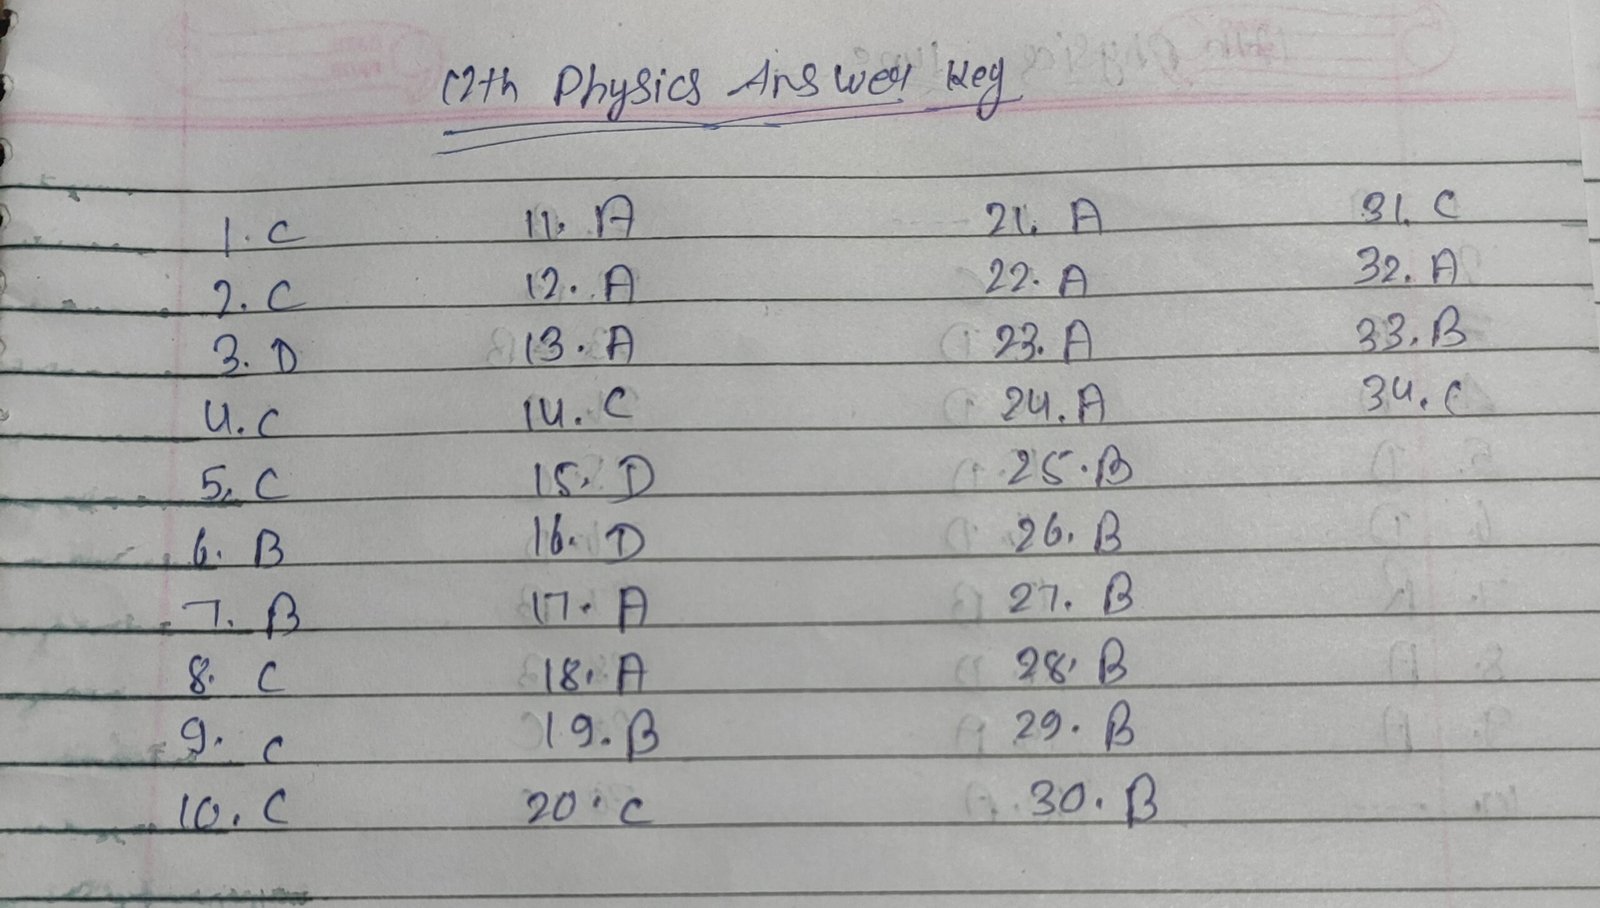 12th Physics Answer Key
1. C 11. A 21. A 31. C
2. C 12. A 22. A 32. A
3. D 13. A 23. A 33. B
4. C 14. C 24. A 34. C
5. C 15. D 25. B
6. B 16. D 26. B
7. B 17. A 27. B
8. C 18. A 28. B
9. C 19. B 29. B
10. C 20. C 30. B